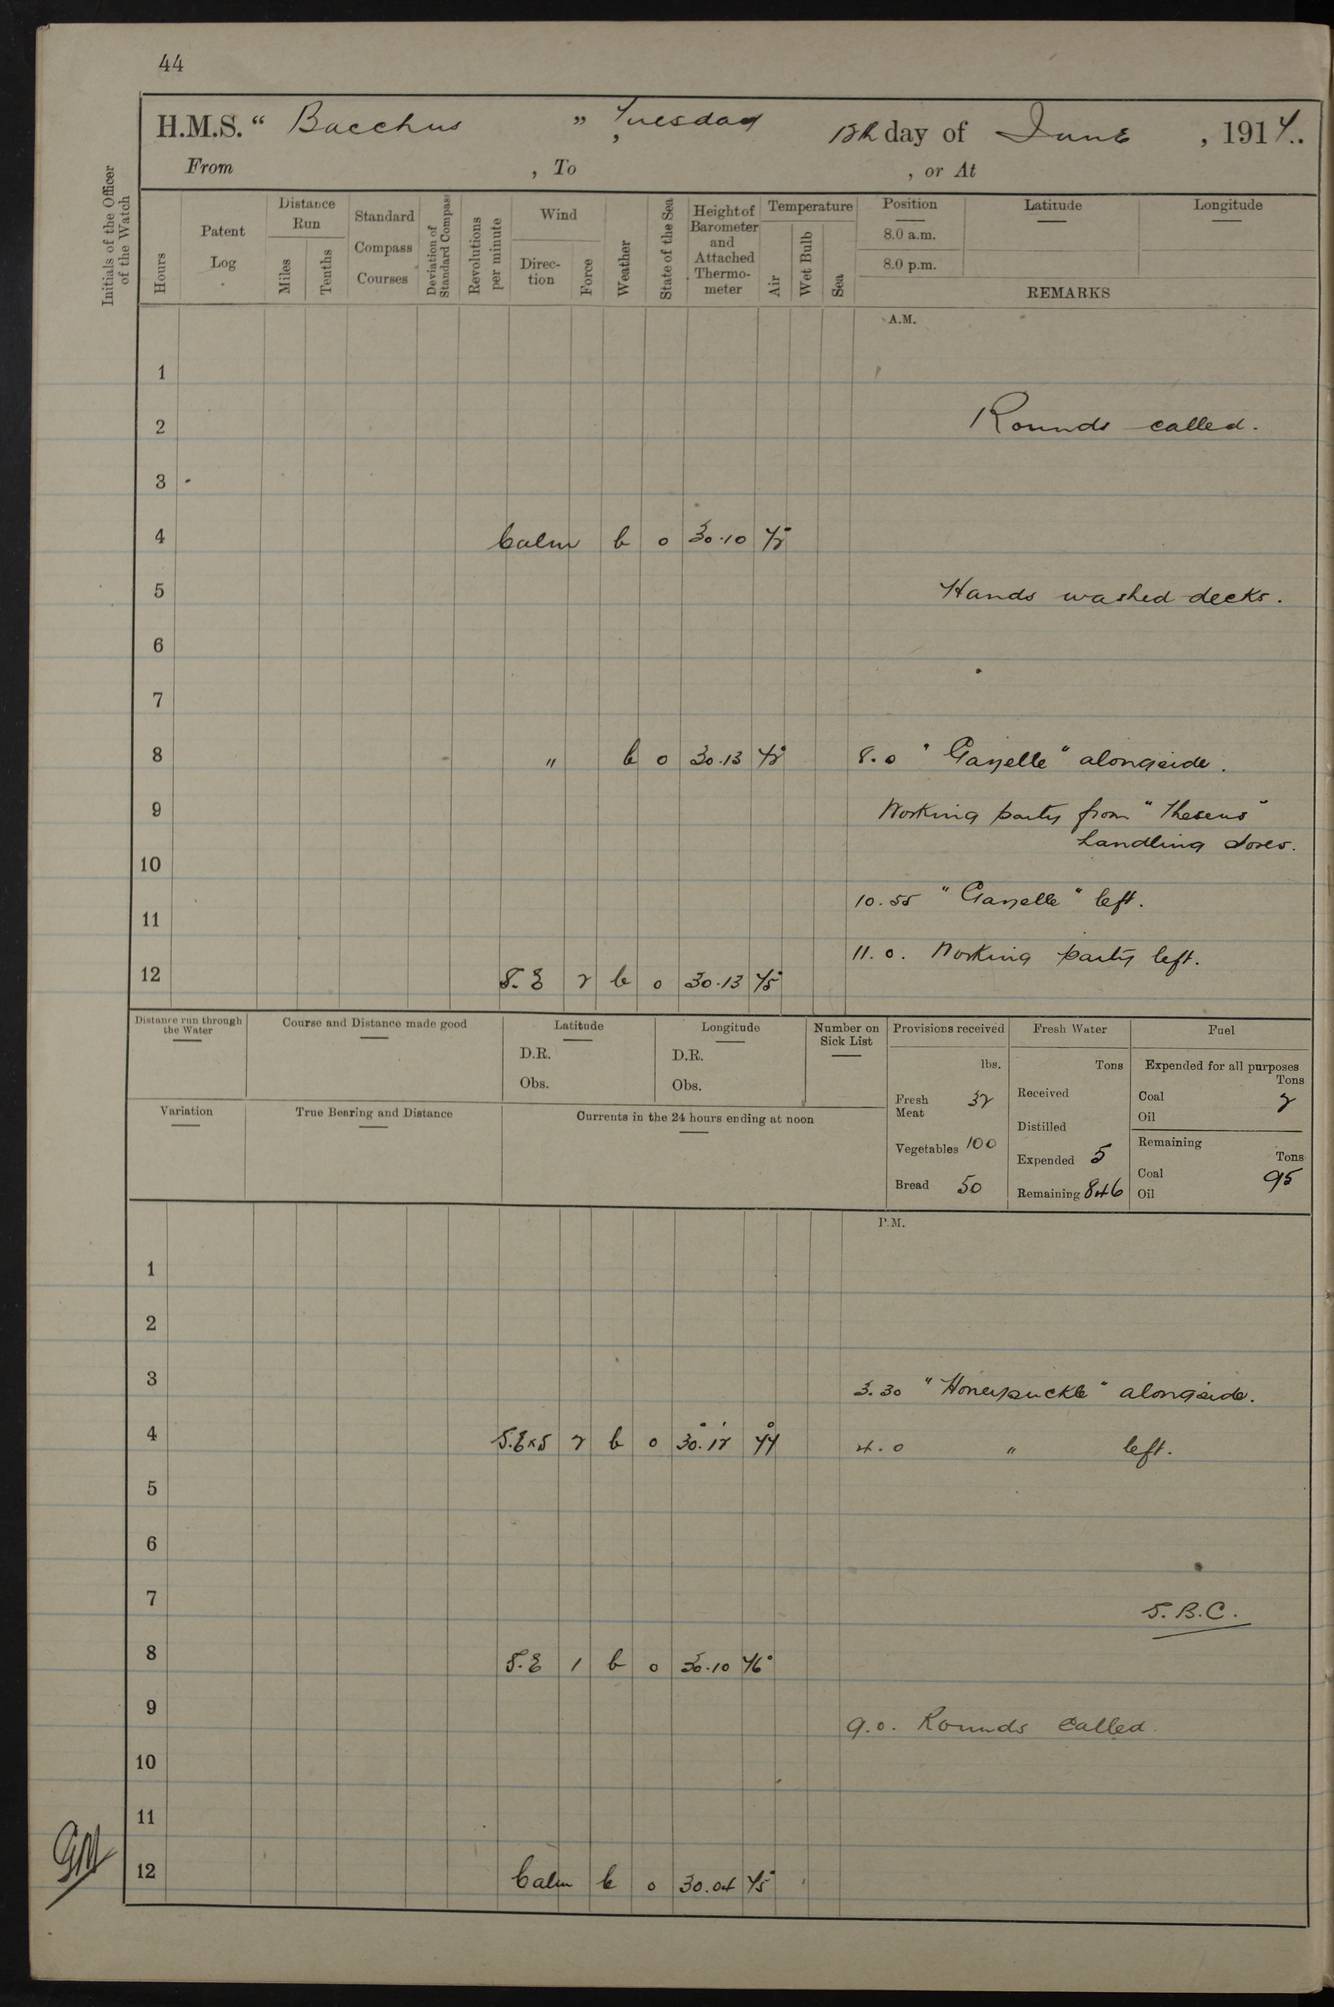 44
H.M.S. “ Bacchus ” Tuesday 12th day of June , 1917.
From , To , or At
Initials of the Officer of the Watch
Hours
Patent Log
Distance Run
Miles
Tenths
Standard Compass Courses
Deviation of Standard Compass
Revolutions per minute
Wind
Direction
Force
Weather
State of the Sea
Height of Barometer and Attached Thermometer
Temperature
Air
Wet Bulb
Sea
Position Latitude Longitude
8.0 a.m.
8.0 p.m.
REMARKS
A.M.
1
2 Rounds called.
3
4 Calm b 0 30.10 72°
5 Hands washed decks.
6
7
8 " b 0 30.13 72° 8.0 "Gazelle" alongside.
9 Working party from "Theseus"
handling stores.
10
10.55 "Gazelle" left.
11
11.0. Working party left.
12 S.E 2 b 0 30.13 75°
Distance run through the Water
Course and Distance made good
Latitude
D.R.
Obs.
Longitude
D.R.
Obs.
Number on Sick List
Variation
True Bearing and Distance
Currents in the 24 hours ending at noon
Provisions received
lbs.
Fresh Meat 32
Vegetables 100
Bread 50
Fresh Water
Tons
Received
Distilled
Expended 5
Remaining 846
Fuel
Expended for all purposes
Tons
Coal 2
Oil
Remaining
Tons
Coal 95
Oil
P.M.
1
2
3 3.30 "Honeysuckle" alongside.
4 S.E x S 2 b 0 30.12 77° 4.0 " left.
5
6
7 S.B.C.
8 S.E 1 b 0 30.10 76°
9 9.0. Rounds called.
10
11
12 Calm b 0 30.04 75°
GM